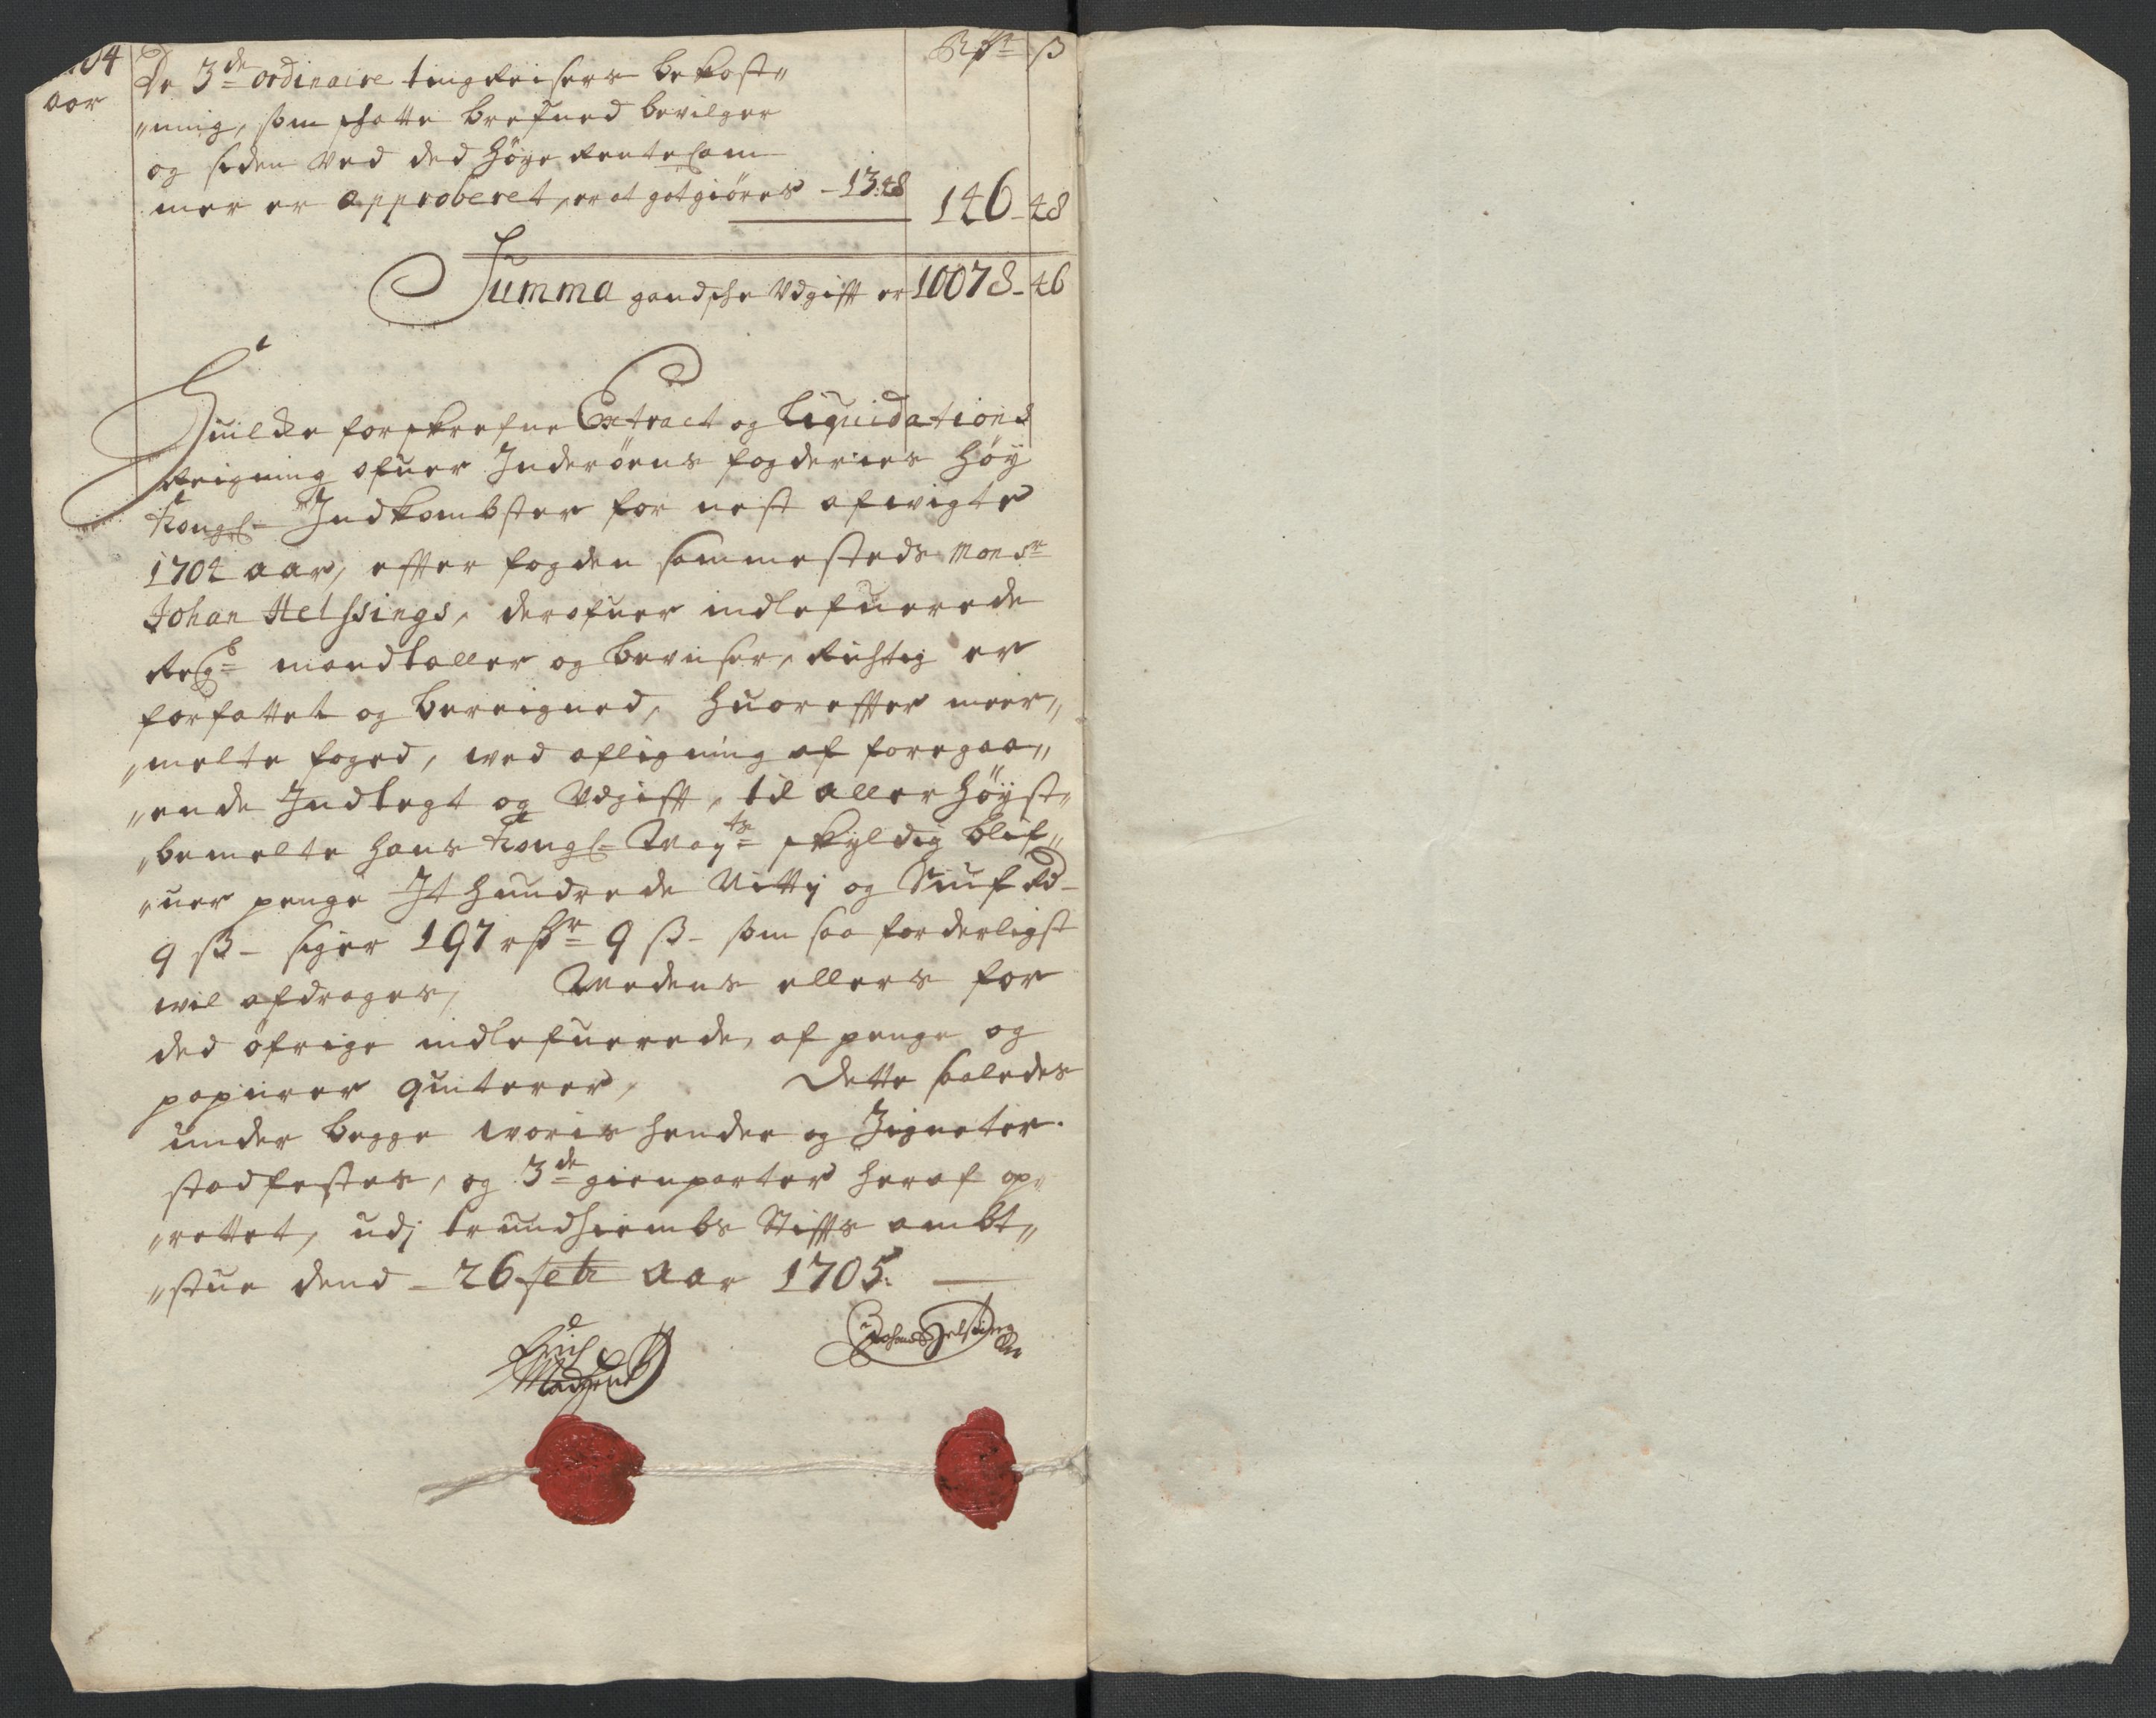 1704
aar
Rdr ß
De 3de ordinaire tingReisers bekost„
„ning, som schatte brefued bevilger
og siden Ved ded höye RenteCam
mer er approberet, er at gotgiöres - 13:48 146-48
Summa gandsche Udgift er 10078-46
Huilcke forskrefne Extract og Liquidations
Reigning ofuer Inderöens fogderies höy
Kongl: Indkombster for nest afvigte
1704 aar, effter fogden sammesteds Monsr
Johan Helssings, derofuer indlefuerede
Regs: mandtaller og beviiser, Richtig er
forfattet og bereigned, huoreffter meer„
„melte foged, ved afligning af foregaa„
„ende Indtegt og Udgift, til allerhöyst„
„bemelte hans Kongl: Mayts skyldig blif„
„uer penge It hundrede Nitty og Siuf Rd-
9 ß - siger 197 rdr 9 ß - som saa forderligst
vil afdrages, Medens ellers for
ded öfrige indlefuerede, af penge og
papiirer quiterer, Dette saaledes
under begge voris hender og Zigneter.
stadfestes, og 3de gienparter heraf op„
„rettet, udj trundhiembs Stiffts ambt„
„stue dend - 26 febr aar 1705.
Johan Helsing